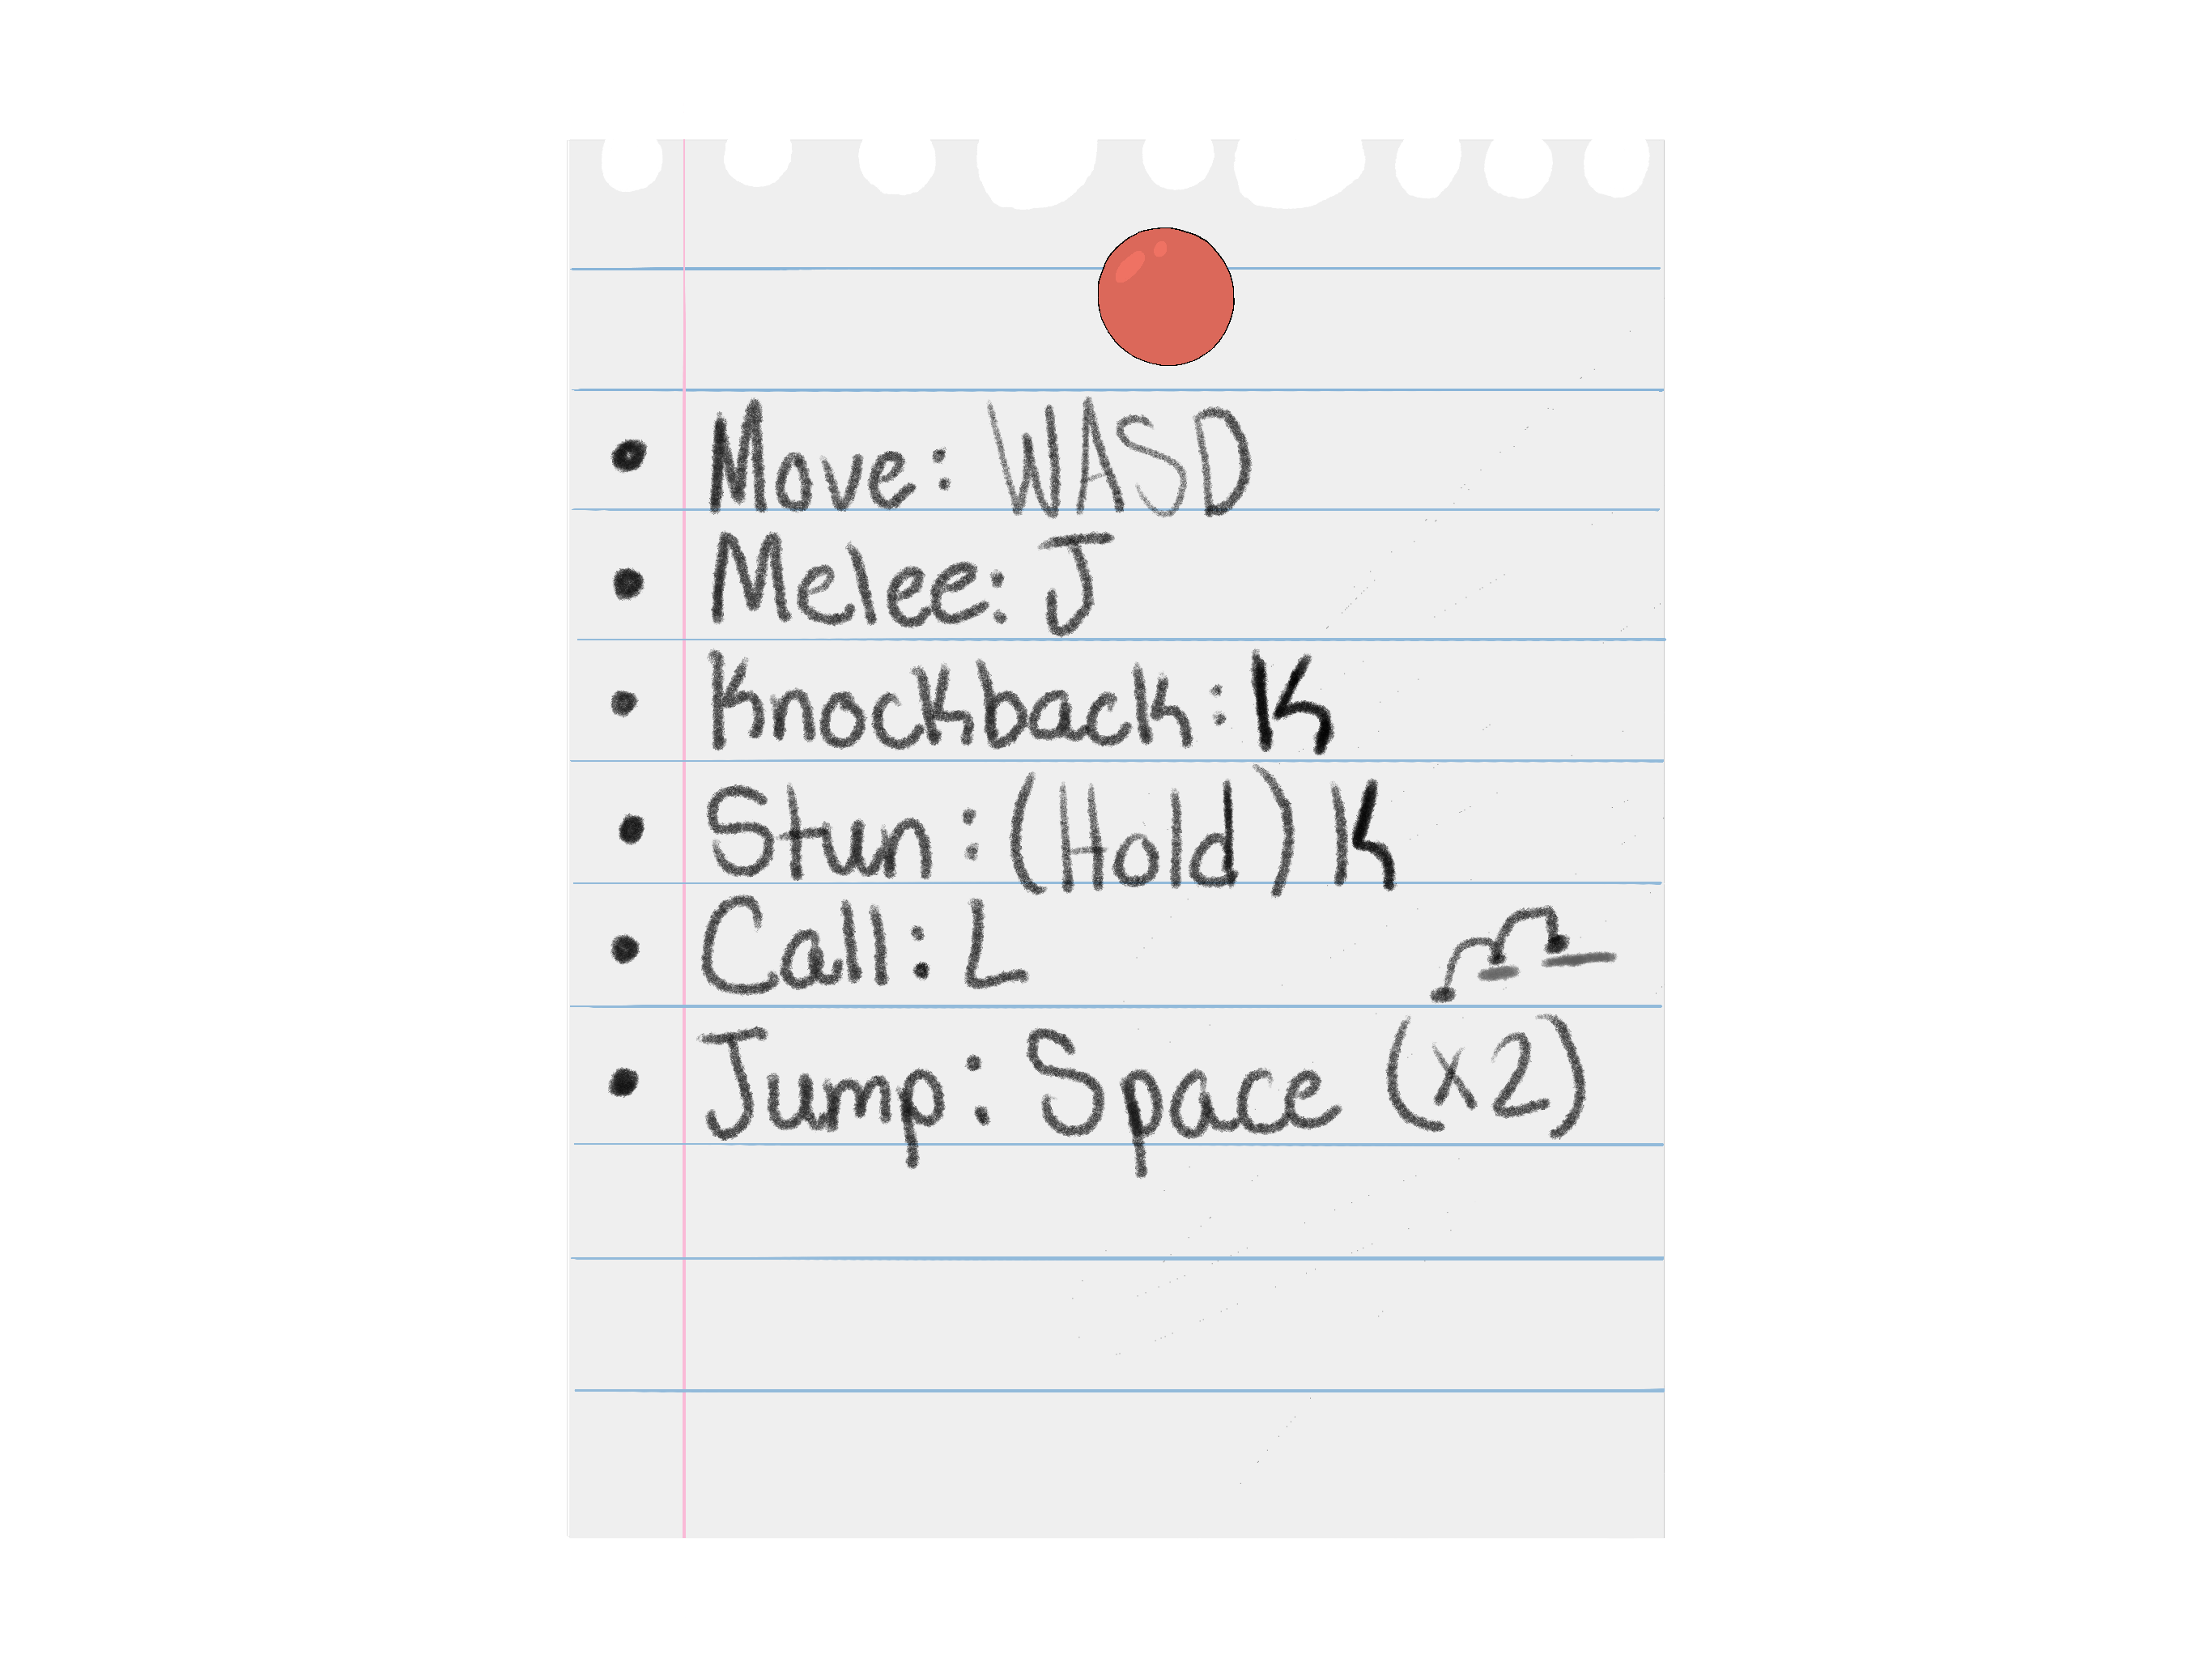 • Move: WASD
• Melee: J
• Knockback: K
• Stun: (Hold) K
• Call: L
• Jump: Space (x2)